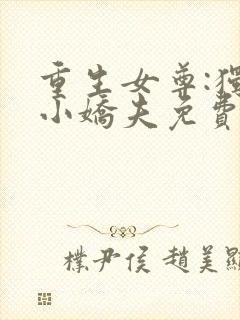 重生女尊:獨
小嬌夫免費
樸尹侯 趙美顯